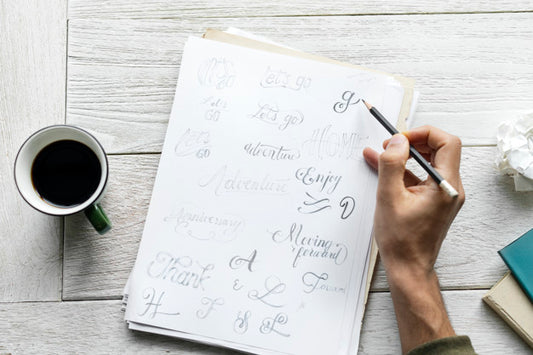 Let's go
g
Let's
GO
Let's go
Let's
GO
adventure
HOME
Adventure
Enjoy
Anniversary
Moving
forward
Thank
A
&
L
H
F
S
L